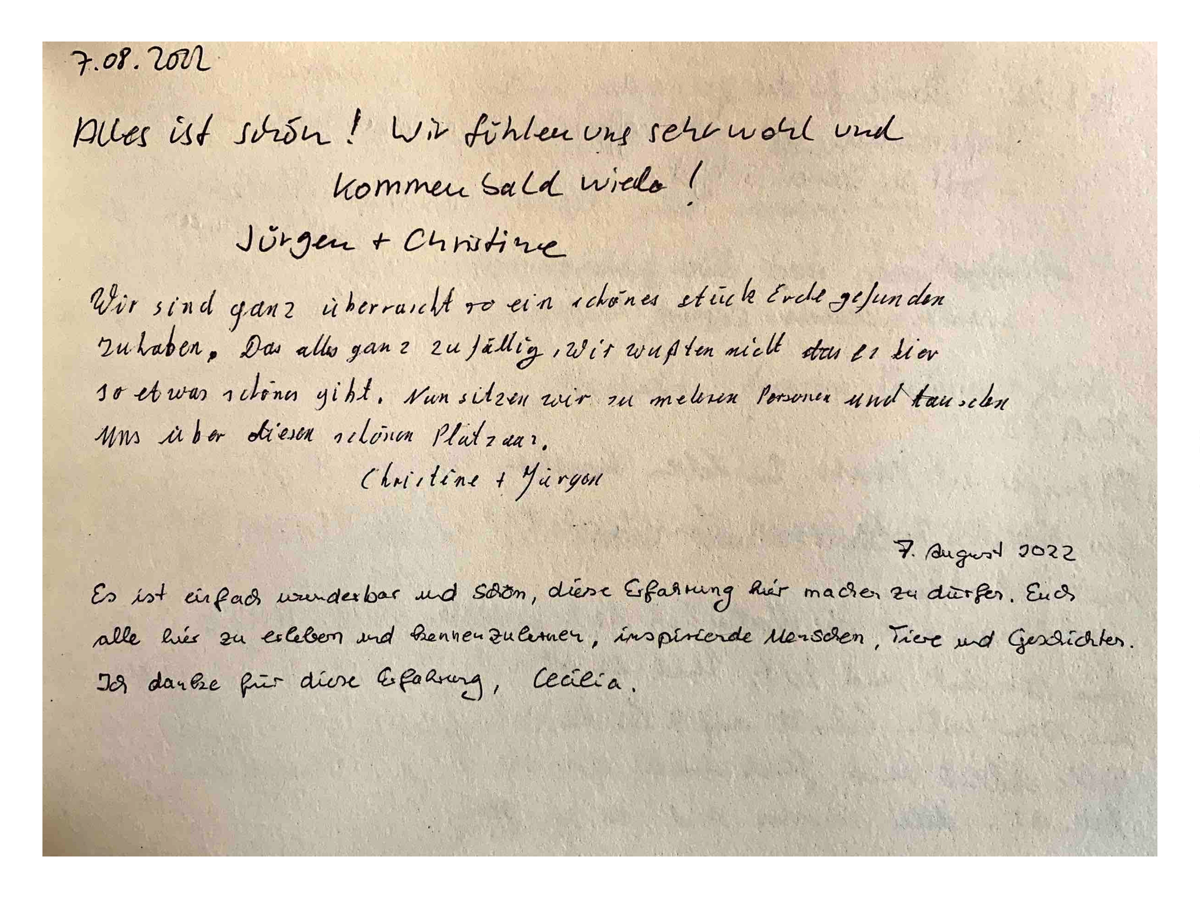 7.08.2022
Alles ist schön! Wir fühlen uns sehr wohl und
kommen bald wieder!
Jürgen + Christine
Wir sind ganz überrascht so ein schönes stück Erde gefunden
zuhaben. Das alles ganz zufällig, Wir wußten nicht das es hier
so etwas schönes gibt. Nun sitzen wir zu mehren Personen und tauschen
uns über diesen schönen Platz aus.
Christine + Jürgen
7. August 2022
Es ist einfach wunderbar und schön, diese Erfahrung hier machen zu dürfen. Euch
alle hier zu erleben und kennenzulernen, inspirierende Menschen, Tiere und Geschichten.
Ich danke für diese Erfahrung, Cecilia.